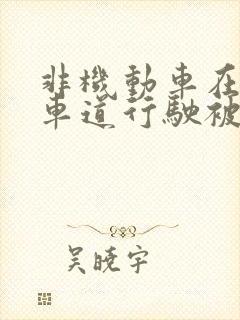 非機動車在
車道行駛被
吴曉宇